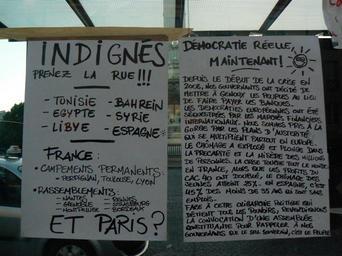 INDIGNÉS
PRENEZ LA RUE!!!
- TUNISIE - BAHREIN
- EGYPTE - SYRIE
- LIBYE - ESPAGNE
FRANCE:
• CAMPEMENTS PERMANENTS:
- PERPIGNAN, TOULOUSE, LYON
• RASSEMBLEMENTS:
- NANTES
- GRENOBLE - STRASBOURG
- MONTPELLIER - BORDEAUX
ET PARIS?
DÉMOCRATIE RÉELLE,
MAINTENANT!
DEPUIS LE DÉBUT DE LA CRISE EN
2008, NOS GOUVERNANTS ONT DÉCIDÉ DE
METTRE À GENOUX LES PEUPLES AU LIEU
DE FAIRE PAYER LES BANQUES.
LES DÉMOCRATIES EUROPÉENNES ONT ÉTÉ
SÉQUESTRÉES PAR LES MARCHÉS FINANCIERS
INTERNATIONAUX. NOUS SOMMES PRIS À LA
GORGE PAR LES PLANS D'AUSTÉRITÉ
QUI SE MULTIPLIENT PARTOUT EN EUROPE.
LE CHÔMAGE A EXPLOSÉ ET PLONGE DANS
LA PRÉCARITÉ ET LA MISÈRE DES MILLIONS
DE PERSONNES. LA CRISE TOUCHE TOUT LE MONDE
EN FRANCE, ALORS QUE LES PROFITS DU
CAC 40 ONT DOUBLÉ, LE CHÔMAGE DES
JEUNES ATTEINT 25%. EN ESPAGNE, C'EST
45% DES MOINS DE 35 ANS QUI SONT SANS
EMPLOI.
FACE À CETTE OLIGARCHIE PUISSANTE QUI
DÉTIENT TOUS LES POUVOIRS, REVENDIQUONS
LA CONVOCATION D'UNE ASSEMBLÉE
CONSTITUANTE POUR RAPPELER À NOS
GOUVERNANTS QUE LE SEUL SOUVERAIN, C'EST LE PEUPLE